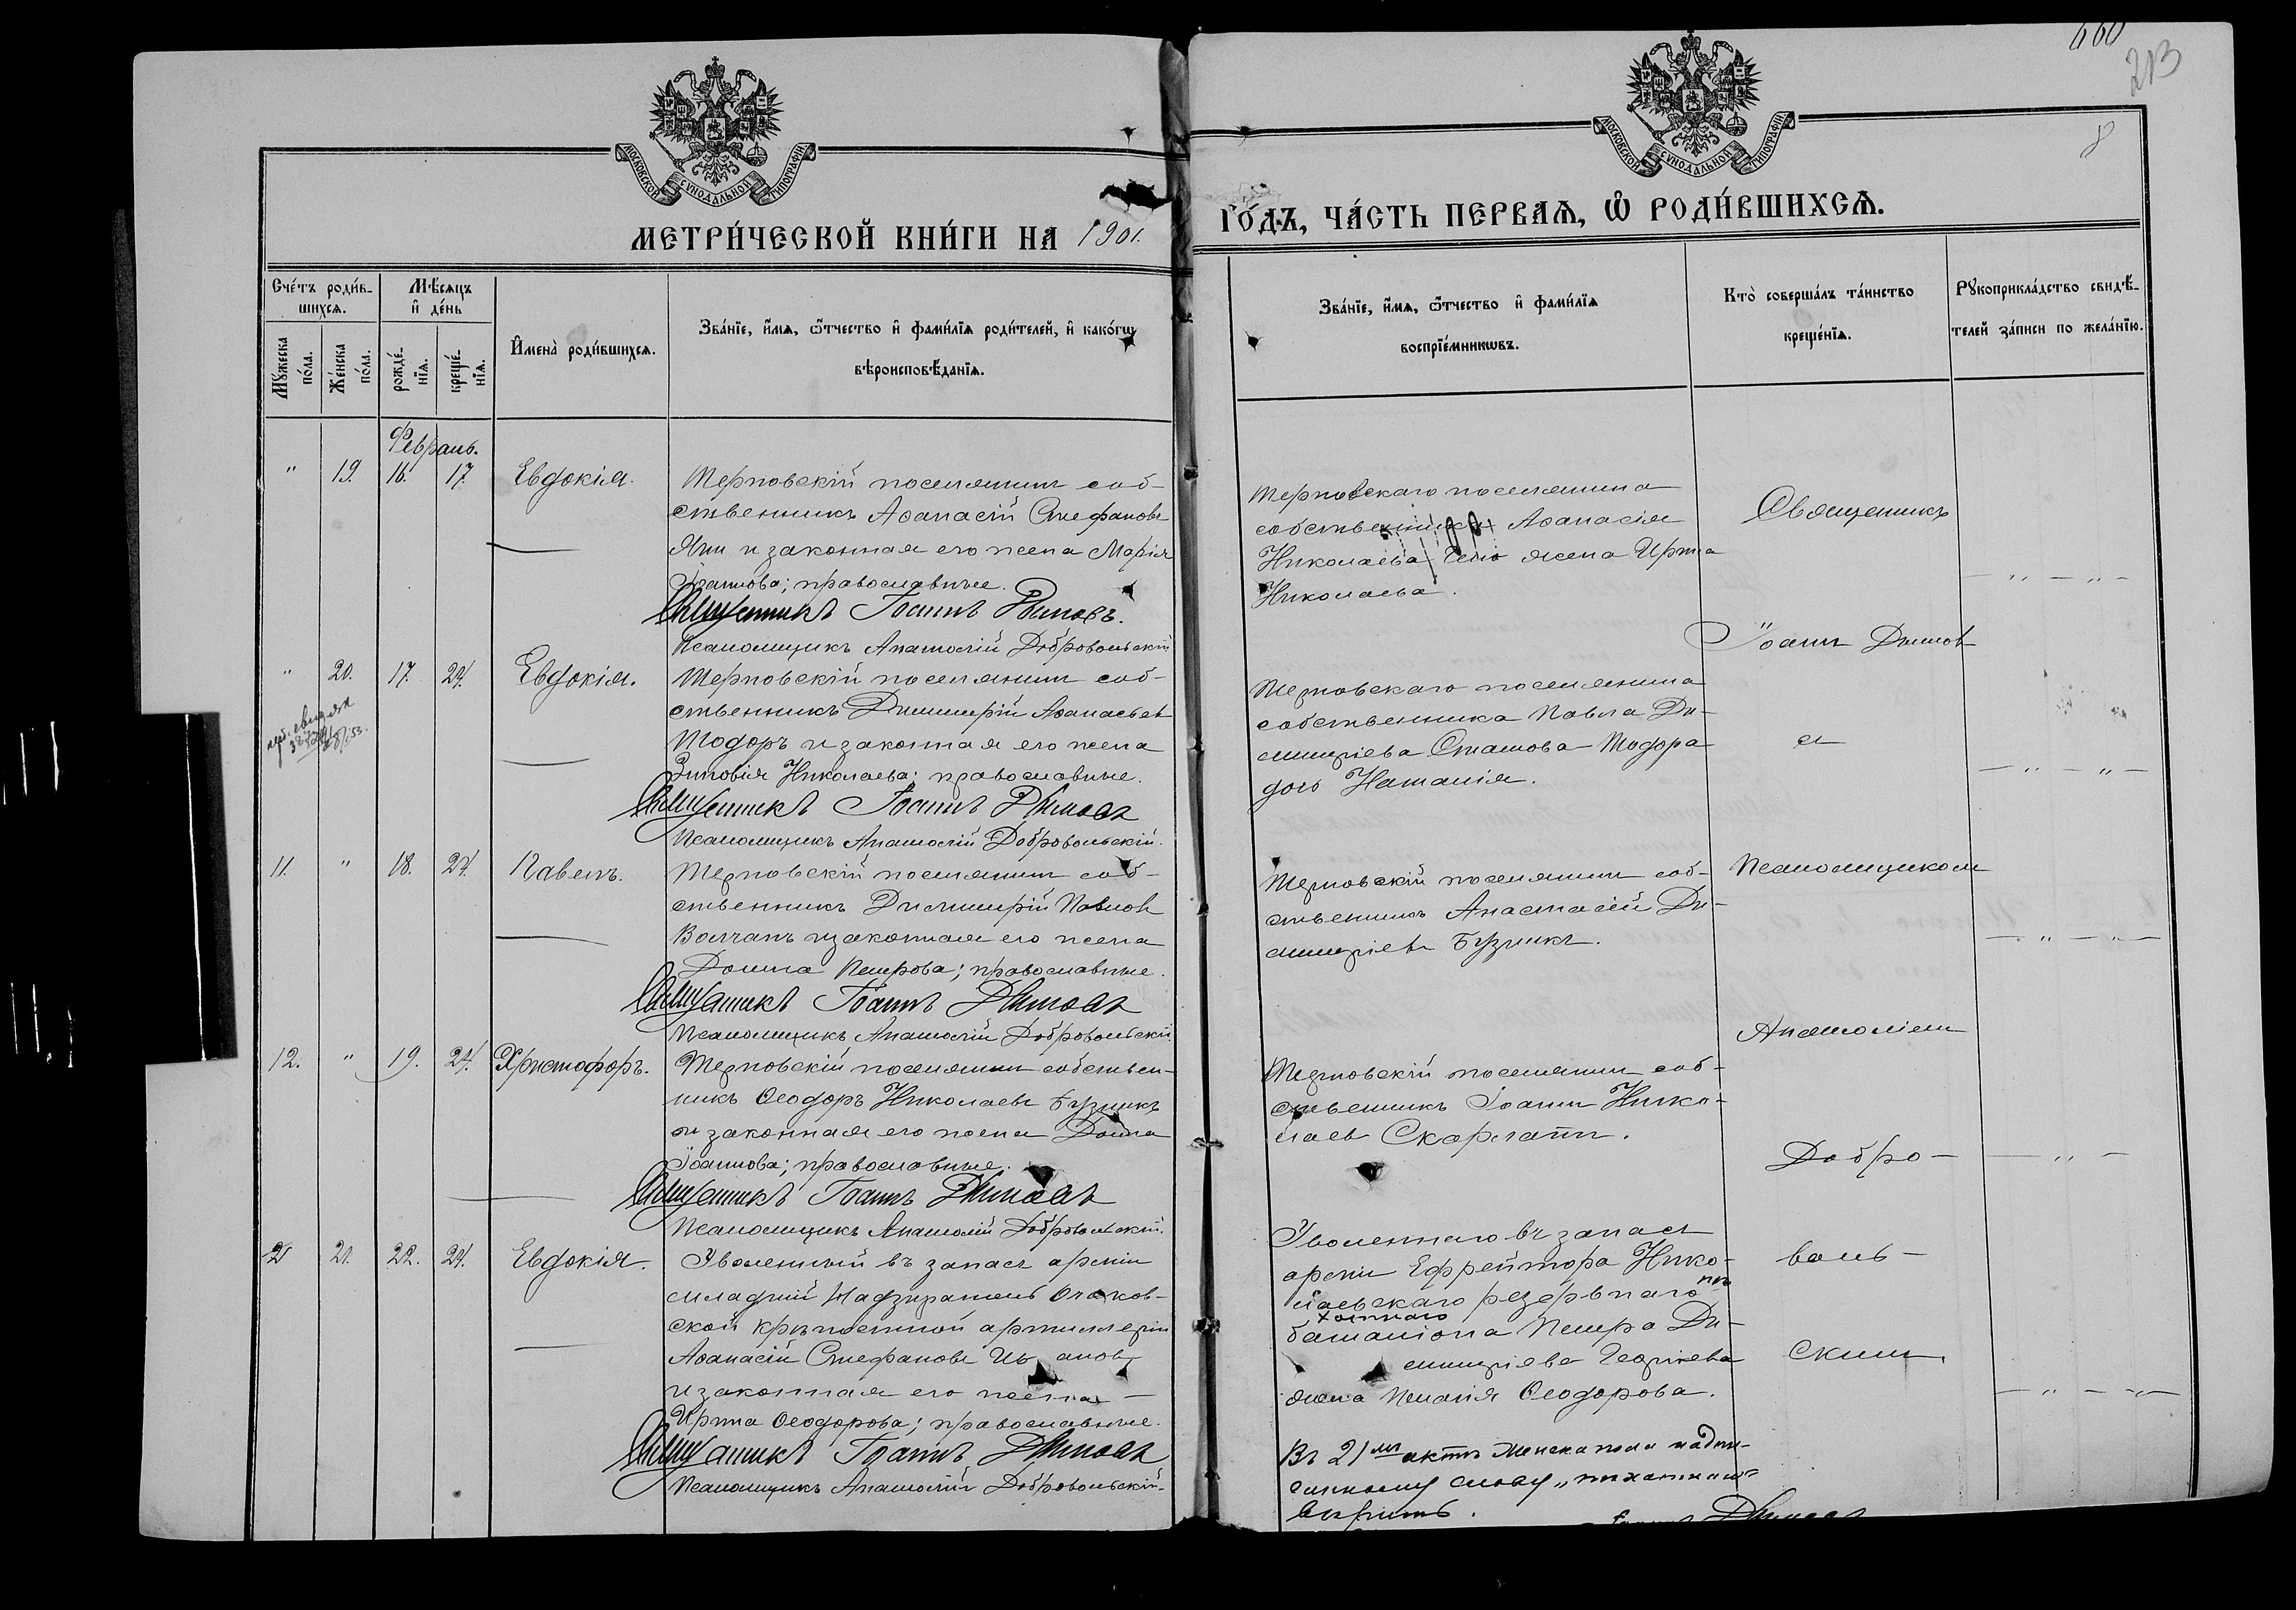 660
213
8
МОСКОВСКОЙ СѴНОДАЛЬНОЙ ТИПОГРАФІИ
МОСКОВСКОЙ СѴНОДАЛЬНОЙ ТИПОГРАФІИ
МЕТРИ́ЧЕСКОЙ КНИ́ГИ НА 1901.
ГО́ДЪ, ЧА́СТЬ ПЕРВАѦ, Ѡ҆ РОДИ́ВШИХСѦ.
Сче́тъ роди́в-
шихсѧ.
Мꙋжеска по́ла.
Же́нска по́ла.
Мѣ́сѧцъ
и҆ де́нь
рожде́-
нїѧ.
креще́-
нїѧ.
И҆мена̀ роди́вшихсѧ.
Зва́нїе, и҆́мѧ, ѻ҆́тчество и҆ фами́лїѧ роди́телей, и҆ како́гѡ
вѣроисповѣ́данїѧ.
Зва́нїе, и҆́мѧ, ѻ҆́тчество и҆ фами́лїѧ
воспрїе́мникѡвъ.
Кто̀ соверша́лъ та́инство
креще́нїѧ.
Рꙋкоприкла́дство свидѣ́-
телей за́писи по жела́нїю.
Февраль.
" 19. 16. 17. Евдокія.
Терновскій поселянинъ соб-
ственникъ Аѳанасій Стефановъ
Яни и законная его жена Марія
Іоаннова; православные.
Священникъ Іоаннъ Димовъ.
Псаломщикъ Анатолій Добровольскій
Терновскаго поселянина
собственника Аѳанасія
Николаева жена Ирина
Николаева.
Священникъ
Іоаннъ Димовъ
" 20. 17. 24. Евдокія.
Терновскій поселянинъ соб-
ственникъ Димитрій Аѳанасьевъ
Тодоръ и законная его жена
Зиновія Николаева; православные.
Священникъ Іоаннъ Димовъ
Псаломщикъ Анатолій Добровольскій.
Терновскаго поселянина
собственника Павла Ди-
митріева Тодора
дочь Наталія.
съ
11. " 18. 24. Павелъ.
Терновскій поселянинъ соб-
ственникъ Димитрій Павловъ
Волчанъ и законная его жена
Домна Петрова; православные.
Священникъ Іоаннъ Димовъ
Псаломщикъ Анатолій Добровольскій
Терновскій поселянинъ соб-
ственникъ Анастасій Ди-
митріевъ Бузникъ.
Псаломщикомъ
Анатоліемъ
12. " 19. 24. Христофоръ.
Терновскій поселянинъ собствен-
никъ Ѳеодоръ Николаевъ Бузникъ
и законная его жена Домна
Іоаннова; православные.
Священникъ Іоаннъ Димовъ
Псаломщикъ Анатолій Добровольскій.
Терновскій поселянинъ соб-
ственникъ Іоаннъ Нико-
лаевъ Скарлатъ.
Добро-
21. 22. 24. Евдокія.
Уволенный въ запасъ арміи
младшій надзиратель Очаков-
ской крѣпостной артиллеріи
Аѳанасій Стефановъ Ивановъ
и законная его жена
Ирина Ѳеодорова; православные.
Священникъ Іоаннъ Димовъ
Псаломщикъ Анатолій Добровольскій.
Уволеннаго въ запасъ
арміи Ефрейтора Нико-
лаевскаго резервнаго пѣ-
хотнаго
баталіона Петра Ди-
митріева Георгіева
жена Пелагія Ѳеодорова.
воль-
скимъ.
Въ 21мъ актѣ женска пола надпи-
санному слову „пѣхотнаго"
вѣрить.